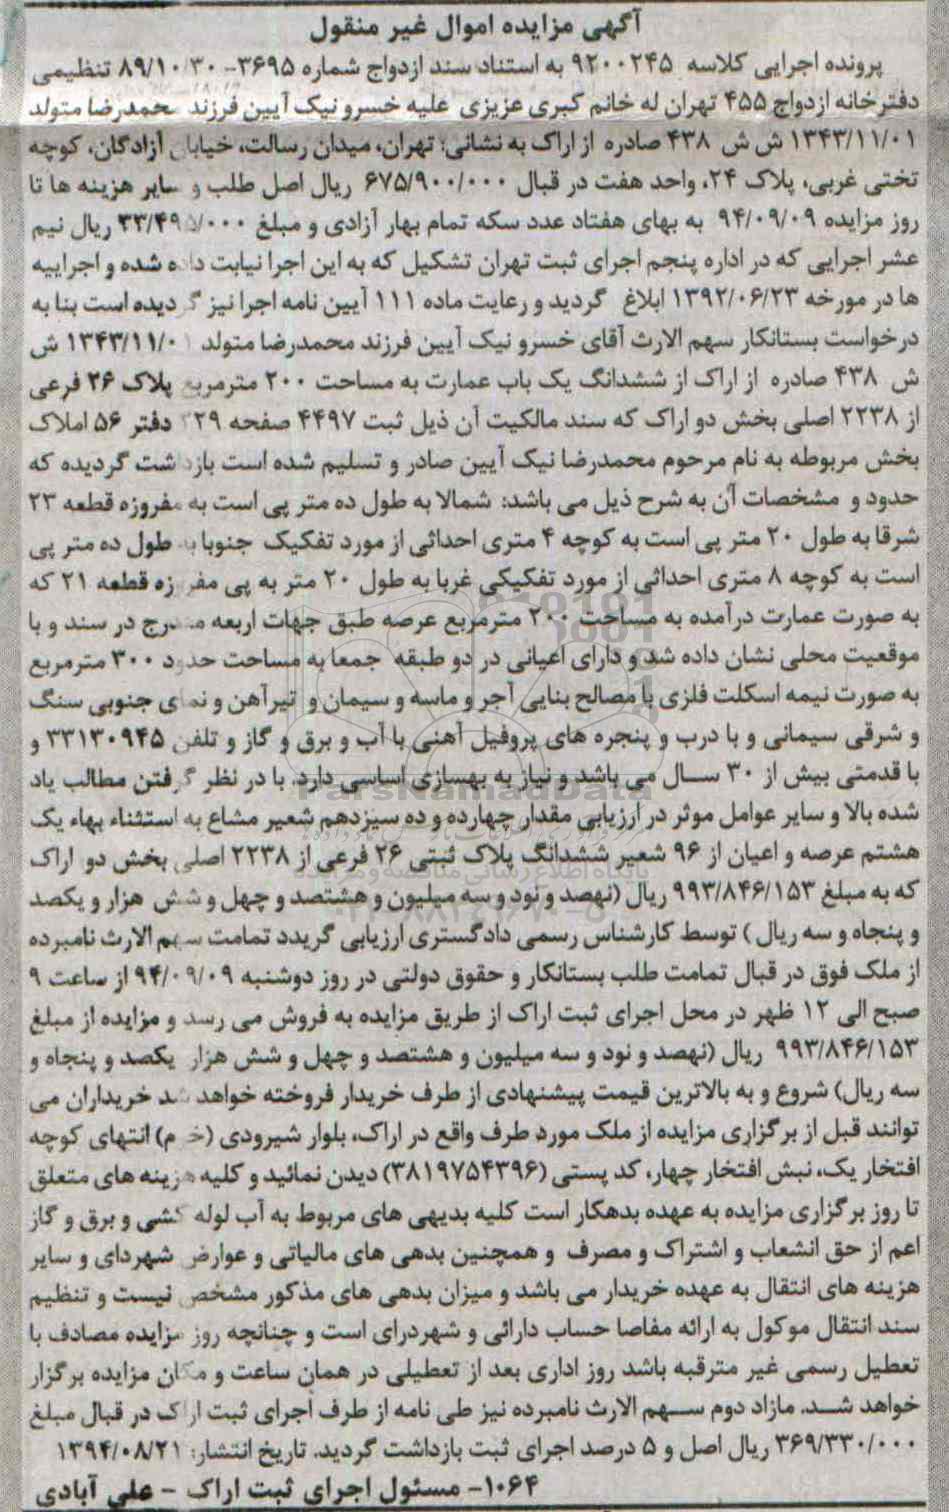 آگهی مزایده اموال غیر منقول
پرونده اجرایی کلاسه ۹۲۰۰۲۴۵ به استناد سند ازدواج شماره ۳۶۹۵- ۸۹/۱۰/۳۰ تنظیمی
دفترخانه ازدواج ۴۵۵ تهران له خانم کبری عزیزی علیه خسرو نیک آیین فرزند محمدرضا متولد
۱۳۴۳/۱۱/۰۱ ش ش ۴۳۸ صادره از اراک به نشانی: تهران، میدان رسالت، خیابان آزادگان، کوچه
تختی غربی، پلاک ۲۴، واحد هفت در قبال ۶۷۵/۹۰۰/۰۰۰ ریال اصل طلب و سایر هزینه ها تا
روز مزایده ۹۴/۰۹/۰۹ به بهای هفتاد عدد سکه تمام بهار آزادی و مبلغ ۳۳/۴۹۵/۰۰۰ ریال نیم
عشر اجرایی که در اداره پنجم اجرای ثبت تهران تشکیل که به این اجرا نیابت داده شده و اجراییه
ها در مورخه ۱۳۹۲/۰۶/۲۳ ابلاغ گردید و رعایت ماده ۱۱۱ آیین نامه اجرا نیز گردیده است بنا به
درخواست بستانکار سهم الارث آقای خسرو نیک آیین فرزند محمدرضا متولد ۱۳۴۳/۱۱/۰۱ ش
ش ۴۳۸ صادره از اراک از ششدانگ یک باب عمارت به مساحت ۲۰۰ مترمربع پلاک ۲۶ فرعی
از ۲۲۳۸ اصلی بخش دو اراک که سند مالکیت آن ذیل ثبت ۴۴۹۷ صفحه دفتر ۵۶ املاک
بخش مربوطه به نام مرحوم محمدرضا نیک آیین صادر و تسلیم شده است بازداشت گردیده که
حدود و مشخصات آن به شرح ذیل می باشد: شمالا به طول ده متر پی است به مفروزه قطعه ۲۳
شرقا به طول ۲۰ متر پی است به کوچه ۴ متری احداثی از مورد تفکیک جنوبا به طول ده متر پی
است به کوچه ۸ متری احداثی از مورد تفکیکی غربا به طول ۲۰ متر به پی مفروزه قطعه ۲۱ که
به صورت عمارت درآمده به مساحت ۲۰۰ مترمربع عرصه طبق جهات اربعه مندرج در سند و با
موقعیت محلی نشان داده شد و دارای اعیانی در دو طبقه جمعا به مساحت حدود ۳۰۰ مترمربع
به صورت نیمه اسکلت فلزی با مصالح بنایی آجر و ماسه و سیمان و تیرآهن و نمای جنوبی سنگ
و شرقی سیمانی و با درب و پنجره های پروفیل آهنی با آب و برق و گاز و تلفن ۳۳۱۳۰۹۴۵ و
با قدمتی بیش از ۳۰ سال می باشد و نیاز به بهسازی اساسی دارد. با در نظر گرفتن مطالب یاد
شده بالا و سایر عوامل موثر در ارزیابی مقدار چهارده و ده سیزدهم شعیر مشاع به استثناء بهاء یک
هشتم عرصه و اعیان از ۹۶ شعیر ششدانگ پلاک ثبتی ۲۶ فرعی از ۲۲۳۸ اصلی بخش دو اراک
که به مبلغ ۹۹۳/۸۴۶/۱۵۳ ریال (نهصد و نود و سه میلیون و هشتصد و چهل و شش هزار و یکصد
و پنجاه و سه ریال) توسط کارشناس رسمی دادگستری ارزیابی گریدد تمامت سهم الارث نامبرده
از ملک فوق در قبال تمامت طلب بستانکار و حقوق دولتی در روز دوشنبه ۹۴/۰۹/۰۹ از ساعت ۹
صبح الی ۱۲ ظهر در محل اجرای ثبت اراک از طریق مزایده به فروش می رسد و مزایده از مبلغ
۹۹۳/۸۴۶/۱۵۳ ریال (نهصد و نود و سه میلیون و هشتصد و چهل و شش هزار یکصد و پنجاه و
سه ریال) شروع و به بالاترین قیمت پیشنهادی از طرف خریدار فروخته خواهد شد خریداران می
توانند قبل از برگزاری مزایده از ملک مورد طرف واقع در اراک، بلوار شیرودی انتهای کوچه
افتخار یک، نبش افتخار چهار، کد پستی (۳۸۱۹۷۵۴۳۹۶) دیدن نمائید و کلیه هزینه های متعلق
تا روز برگزاری مزایده به عهده بدهکار است کلیه بدیهی های مربوط به آب لوله کشی و برق و گاز
اعم از حق انشعاب و اشتراک و مصرف و همچنین بدهی های مالیاتی و عوارض شهردای و سایر
هزینه های انتقال به عهده خریدار می باشد و میزان بدهی های مذکور مشخص نیست و تنظیم
سند انتقال موکول به ارائه مفاصا حساب دارائی و شهردرای است و چنانچه روز مزایده مصادف با
تعطیل رسمی غیر مترقبه باشد روز اداری بعد از تعطیلی در همان ساعت و مکان مزایده برگزار
خواهد شد. مازاد دوم سهم الارث نامبرده نیز طی نامه از طرف اجرای ثبت اراک در قبال مبلغ
۳۶۹/۳۳۰/۰۰۰ ریال اصل و ۵ درصد اجرای ثبت بازداشت گردید. تاریخ انتشار: ۱۳۹۴/۰۸/۲۱
۱۰۶۴- مسئول اجرای ثبت اراک - علی آبادی
ParsNamadData